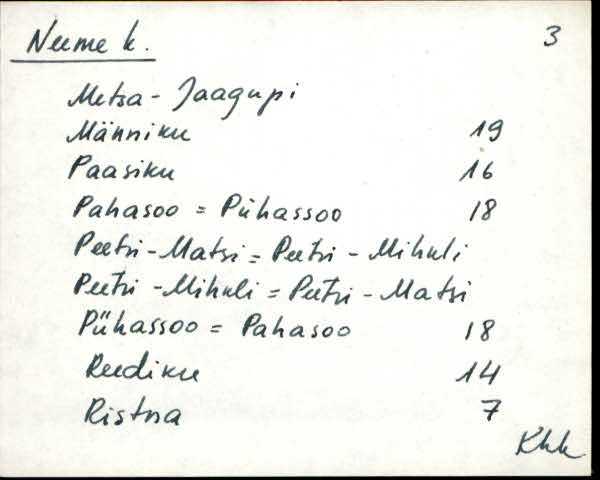 Neeme k. 3
Metsa - Jaagupi
Männiku 19
Paasiku 16
Pahasoo = Pühassoo 18
Peetri - Matsi = Peetri - Mihkli
Peetri - Mihkli = Peetri - Matsi
Pühassoo = Pahasoo 18
Reediku 14
Ristna 7
Khk